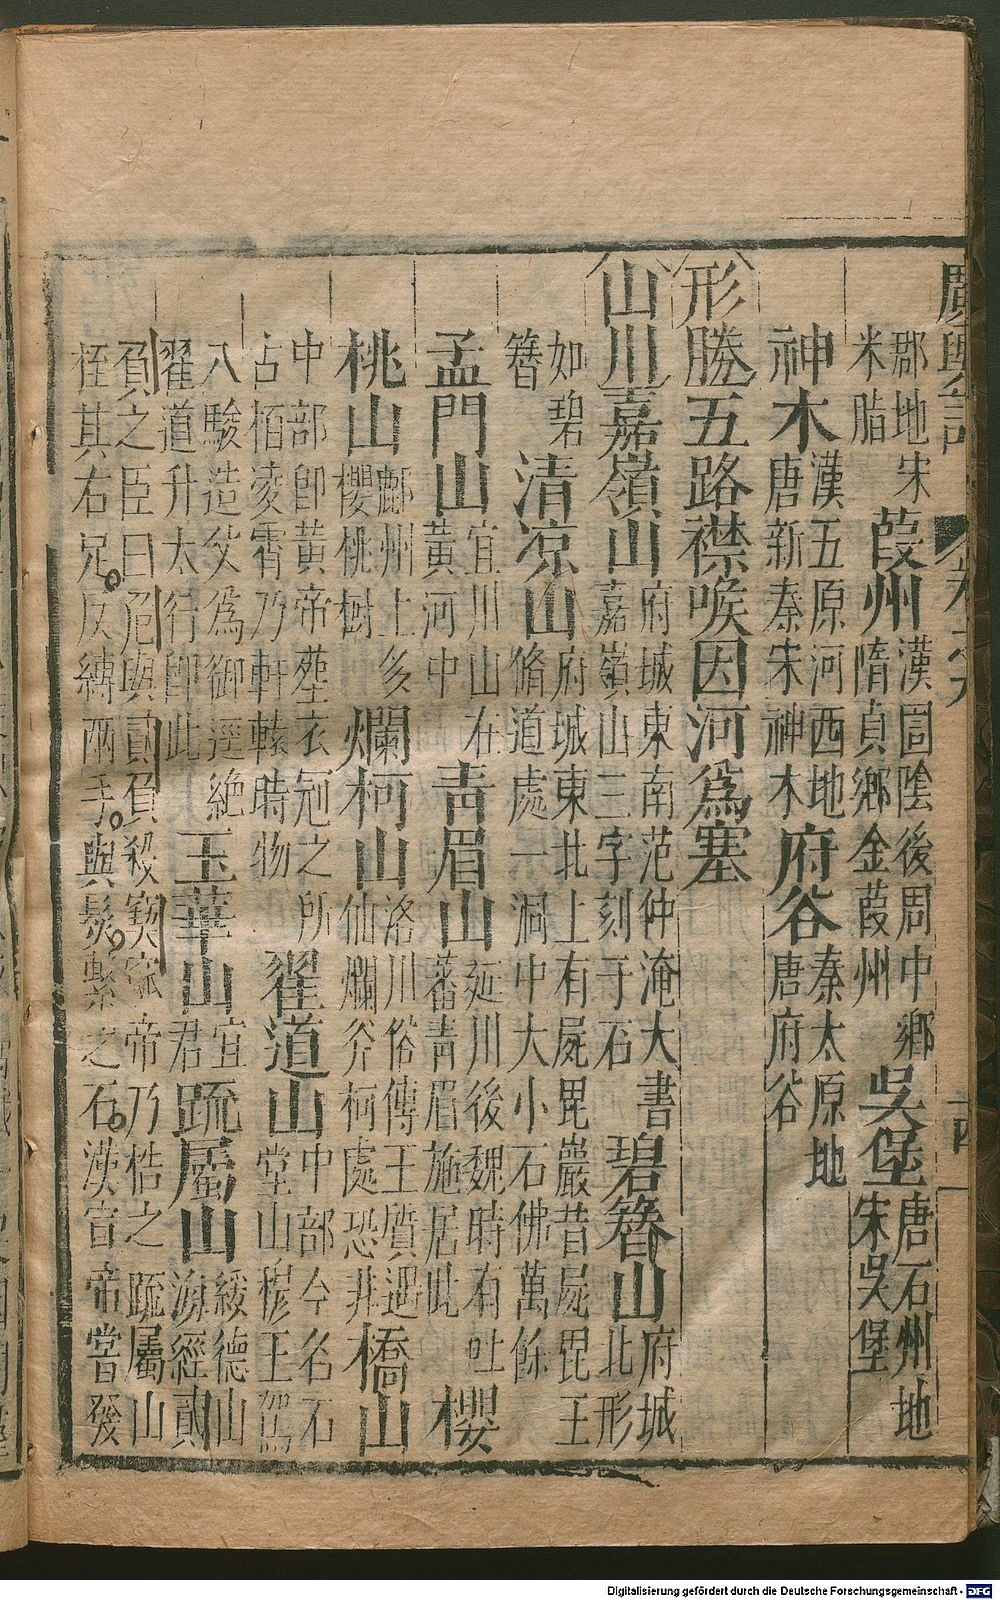 廣輿記 卷之六 十四
郡地宋
米脂
葭州
漢圁陰後周中鄉
隋貞鄉金葭州
吳堡
唐石州地
宋吳堡
神木
漢五原河西地
唐新秦宋神木
府谷
秦太原地
唐府谷
形勝五路襟喉因河爲塞
山川嘉嶺山
府城東南范仲淹大書
嘉嶺山三字刻于石
碧簪山
府城
北形
如碧
簪
清凉山
府城東北上有屍毘巖昔屍毘王
脩道處一洞中大小石佛萬餘
孟門山
宜川山在
黃河中
青眉山
延川後魏時有吐
蕃青眉施居此
櫻
桃山
鄜州上多
櫻桃樹
爛柯山
洛川俗傳王質遇
仙爛斧柯處恐非
橋山
中部卽黃帝塟衣冠之所
占栢凌霄乃軒轅時物
翟道山
中部今名石
堂山穆王駕
八駿造父爲御逕絶
翟道升太行卽此
玉華山
宜
君
疏屬山
綏德山
海經貳
負之臣曰危與貳負殺窫窳帝乃梏之疏屬山
桎其右足反縛兩手與髮繫之石漢宣帝嘗發
Digitalisierung gefördert durch die Deutsche Forschungsgemeinschaft - DFG